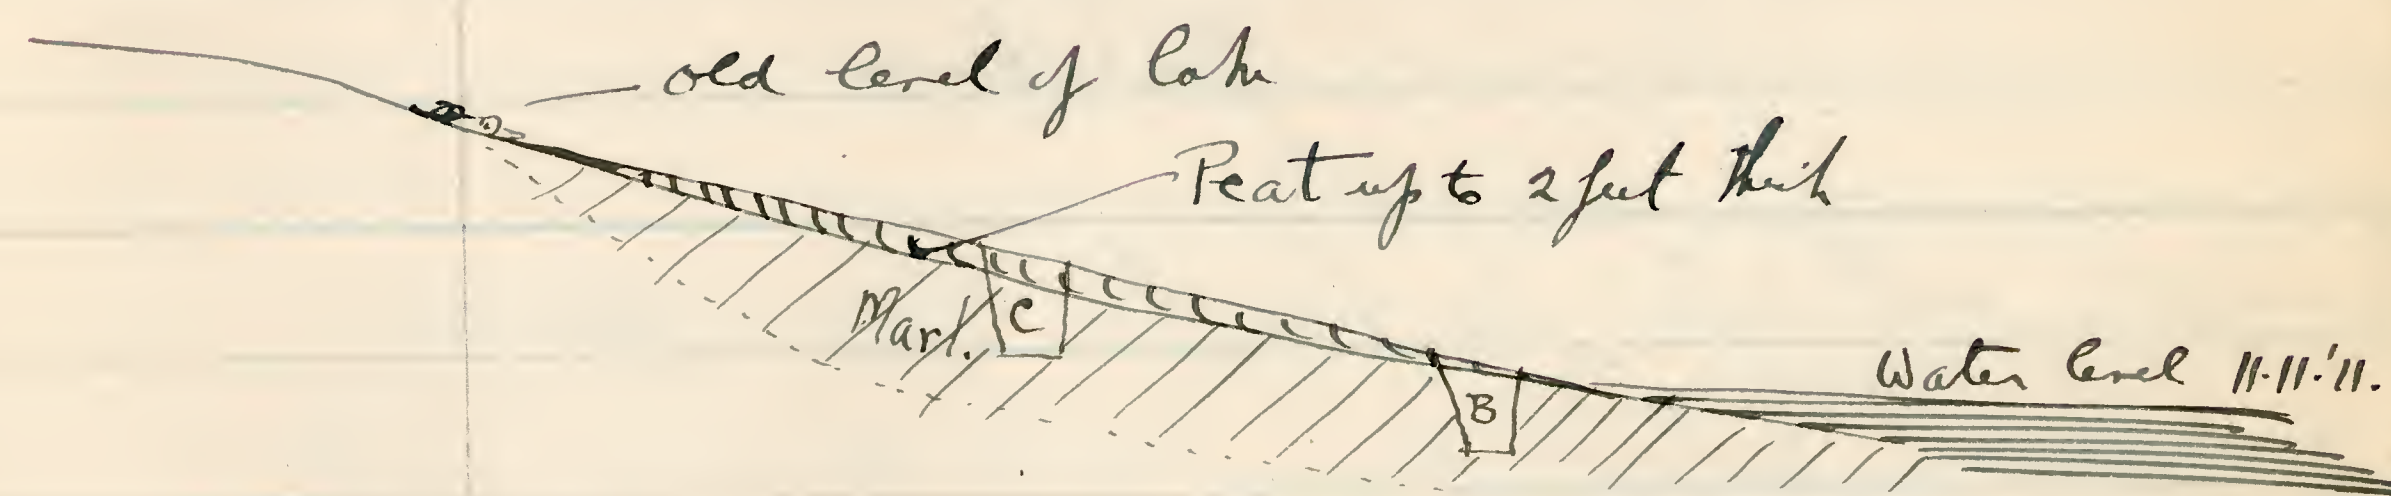 old level of lake
Peat up to 2 feet thick
Marl.
C
B
Water level 11.11.'11.